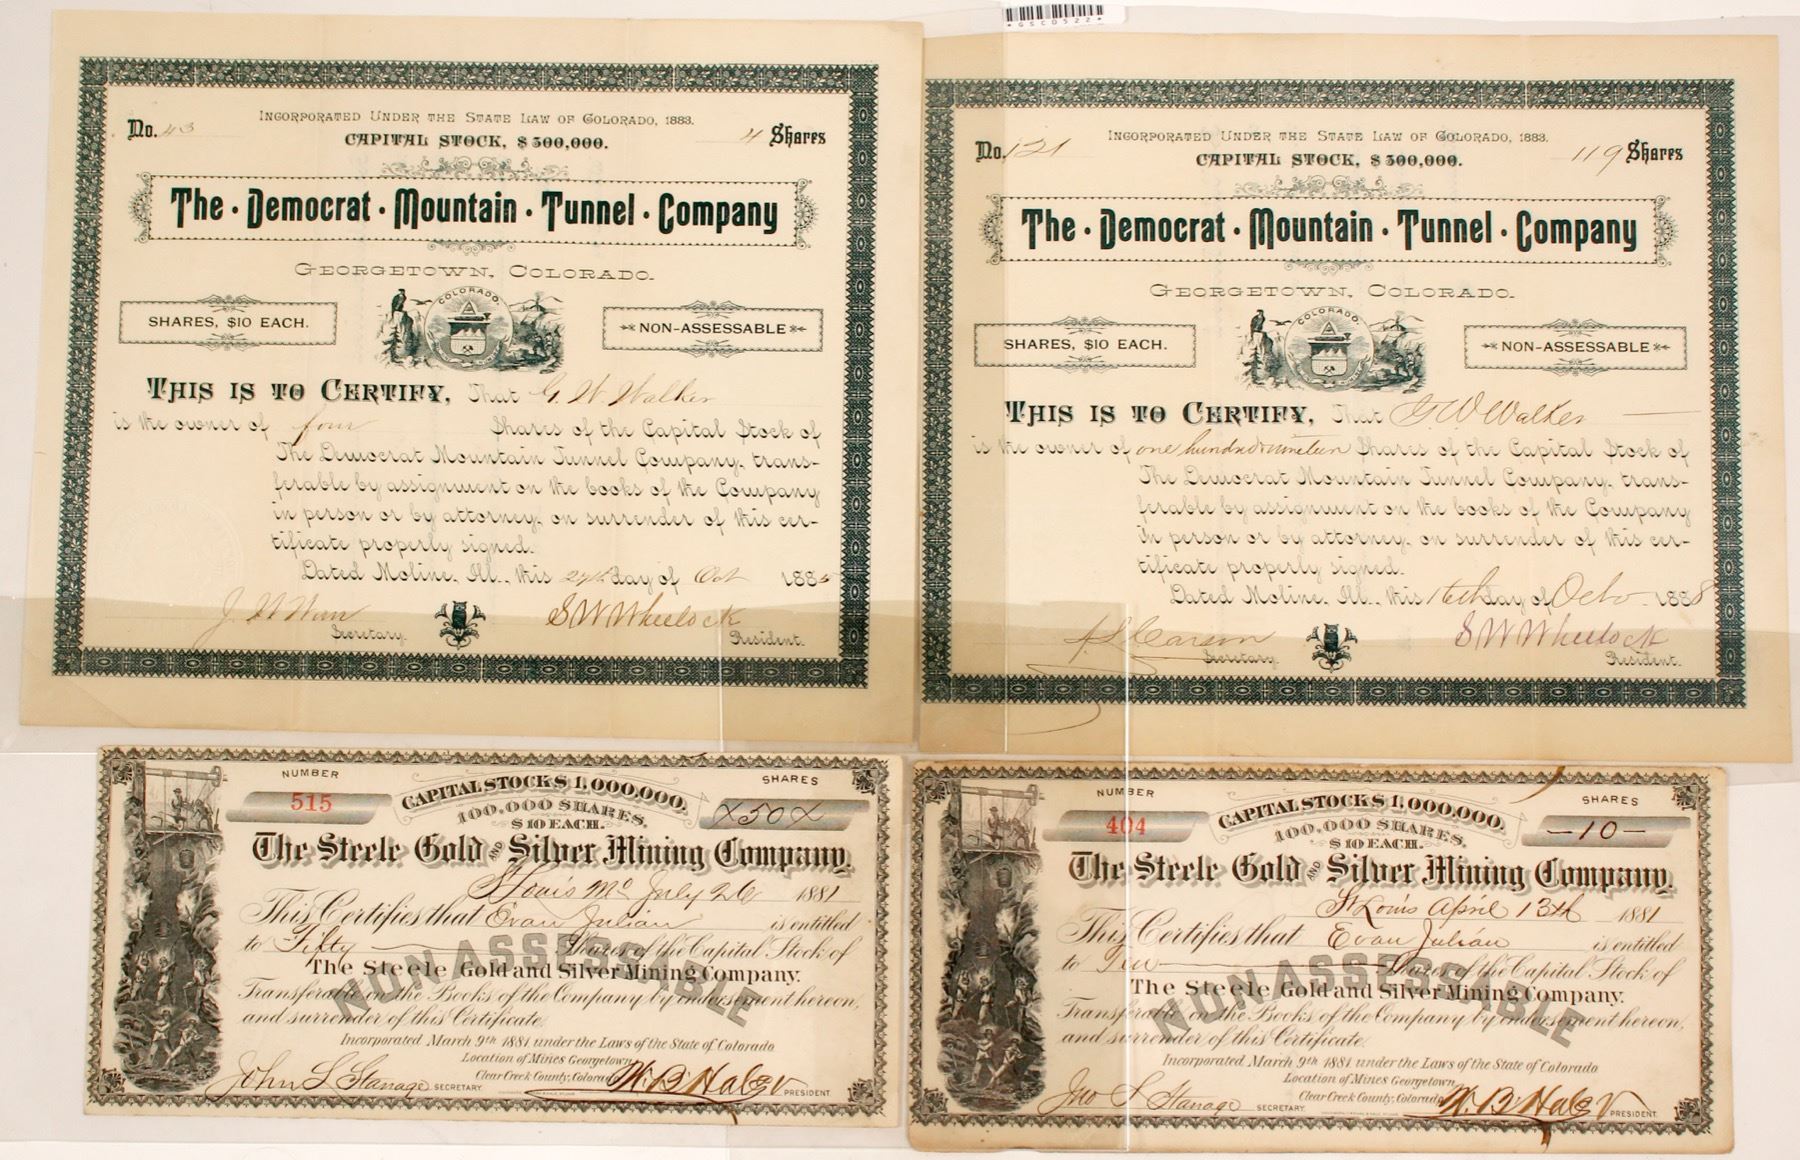 *GSCD522*
No. 43
INCORPORATED UNDER THE STATE LAW OF COLORADO, 1883.
4 Shares
CAPITAL STOCK, $300,000.
The · Democrat · Mountain · Tunnel · Company
GEORGETOWN, COLORADO.
SHARES, $10 EACH.
COLORADO.
NON-ASSESSABLE
THIS IS TO CERTIFY, That G. W. Walker
is the owner of four Shares of the Capital Stock of
The Democrat Mountain Tunnel Company, trans-
ferable by assignment on the books of the Company
in person or by attorney, on surrender of this cer-
tificate properly signed.
Dated Moline, Ill., this 27th day of Oct 1885
S W Wheelock
Secretary.
President.
No. 121
INCORPORATED UNDER THE STATE LAW OF COLORADO, 1883.
119 Shares
CAPITAL STOCK, $300,000.
The · Democrat · Mountain · Tunnel · Company
GEORGETOWN, COLORADO.
SHARES, $10 EACH.
COLORADO.
NON-ASSESSABLE
THIS IS TO CERTIFY, That G W Walker
is the owner of one hundred nineteen Shares of the Capital Stock of
The Democrat Mountain Tunnel Company, trans-
ferable by assignment on the books of the Company
in person or by attorney, on surrender of this cer-
tificate properly signed.
Dated Moline, Ill., this 16th day of Octo 1888
S W Wheelock
Secretary.
President.
NUMBER
515
CAPITAL STOCK $1,000,000.
100,000 SHARES,
$10 EACH.
SHARES
x50x
The Steele Gold AND Silver Mining Company.
St Louis Mo July 26 1881
This Certifies that Evan Julian is entitled
to Fifty Shares of the Capital Stock of
The Steele Gold and Silver Mining Company.
NON ASSESSABLE
Transferable on the Books of the Company by endorsement hereon,
and surrender of this Certificate.
Incorporated March 9th 1881 under the Laws of the State of Colorado
Location of Mines Georgetown
Clear Creek County, Colorado
John S Stanage SECRETARY.
W. B. Hale PRESIDENT
NUMBER
404
CAPITAL STOCK $1,000,000.
100,000 SHARES,
$10 EACH.
SHARES
—10—
The Steele Gold AND Silver Mining Company.
St Louis April 13th 1881
This Certifies that Evan Julian is entitled
to Ten Shares of the Capital Stock of
The Steele Gold and Silver Mining Company.
NON ASSESSABLE
Transferable on the Books of the Company by endorsement hereon,
and surrender of this Certificate.
Incorporated March 9th 1881 under the Laws of the State of Colorado
Location of Mines Georgetown
Clear Creek County, Colorado
Jno S Stanage SECRETARY.
W. B. Hale PRESIDENT